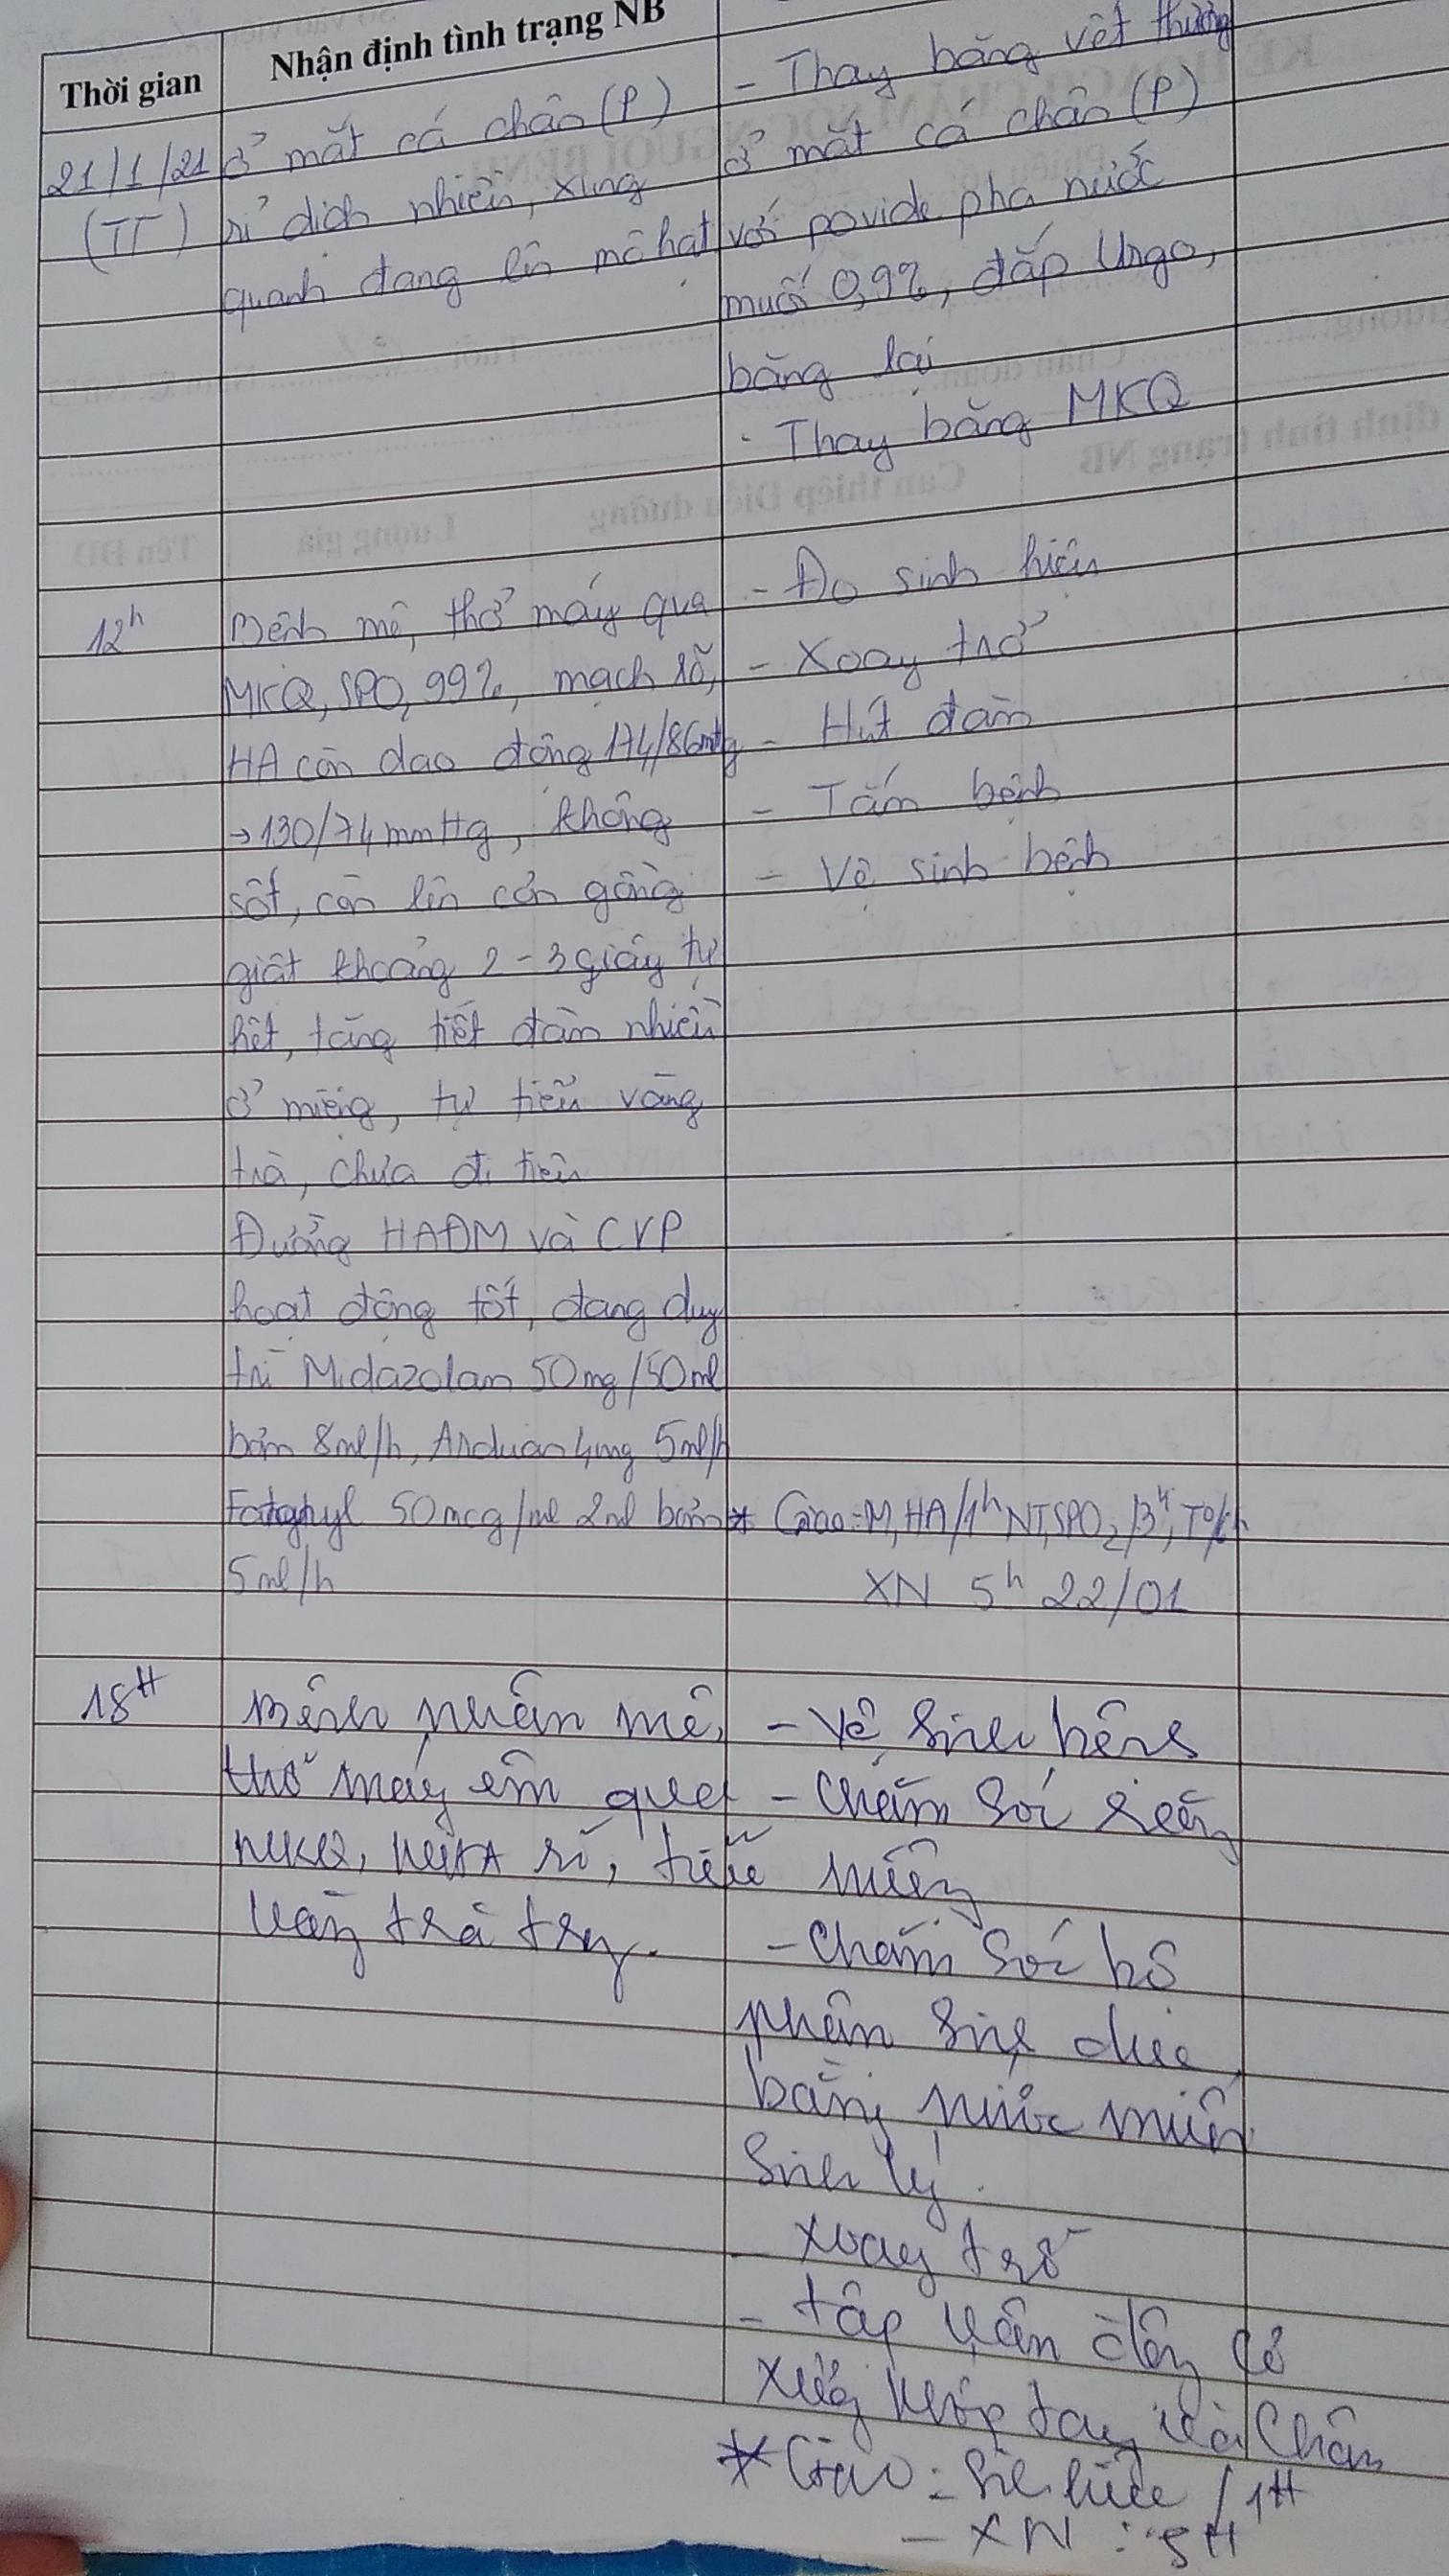 Thời gian
Nhận định tình trạng NB
21/1/21
(TT)
ở mắt cá chân (P)
rỉ dịch nhiều, xung
quanh đang lên mô hạt
- Thay băng vết thương
ở mắt cá chân (P)
với povide pha nước
muối 0,9%, đắp Urgo,
băng lại
- Thay băng MKQ
12h
Bệnh mê, thở máy qua
MKQ, SPO2 99%, mạch rõ,
HA còn dao động 174/86mmHg
→ 130/74mmHg, không
sốt, còn lên cơn gồng
giật khoảng 2-3 giây tự
hết, tăng tiết đàm nhiều
ở miệng, tự tiểu vàng
trà, chưa đi tiêu
Đường HAĐM và CVP
hoạt động tốt, đang duy
trì Midazolam 50mg/50ml
bơm 8ml/h, Arduan 4mg 5ml/h
50mcg/ml 2ml bơm
5ml/h
- Đo sinh hiệu
- Xoay trở
- Hút đàm
- Tắm bệnh
- Vệ sinh bệnh
* Giao: M, HA/1h NT, SPO2/3h, T°/6h
XN 5h 22/01
18H
Bệnh nhân mê,
thở máy êm qua
MKQ, rõ, tiểu
vàng trà
- Vệ sinh bệnh
- Chăm sóc răng
miệng
- Chăm sóc bộ
phận sinh dục
bằng nước muối
sinh lý.
- Xoay trở
- tập vận động cơ
xương khớp tay và chân
* Giao: Sinh hiệu / 1H
- XN : 5H